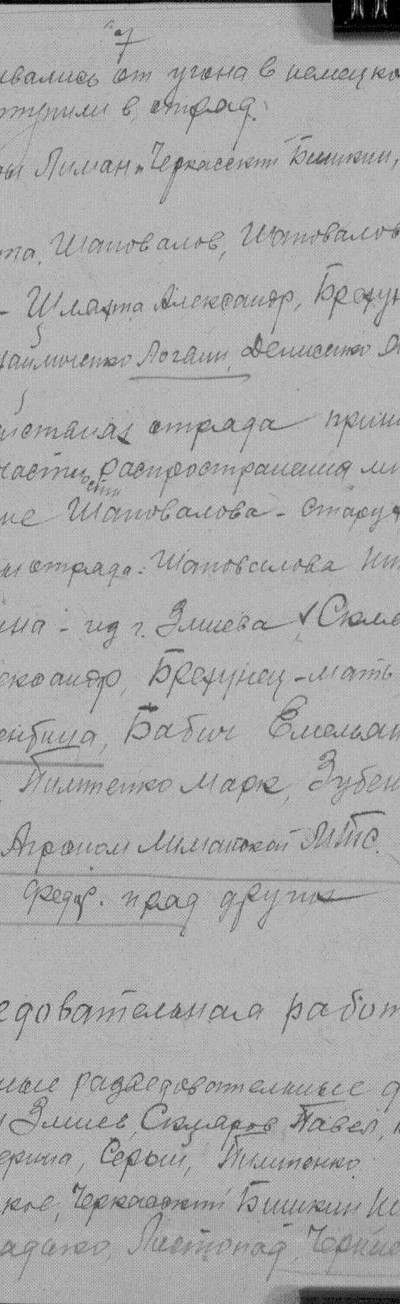 7
ивались от угона в немецко
ступили в отряд.
Лиман, Черкасский Бишкин,
Шаповалов, Шаповалов
- Шляхта Александр, Брехун
Денисенко
отряда прин
части распространения
Шаповалова - Стару
отряда: Шаповалова
- из г. Змиева, Скля
ександр, Брехунец - мать
Бабич Емельян
Пилипенко Марк, Зубен
Агроном Лиманской МТС.
Федор. и ряд других
едовательная работ
ные разведовательные
Змиев, Скляров Павел,
ерина, Серый, Пилипенко
кое, Черкасский Бишкин
Листопад, Черне